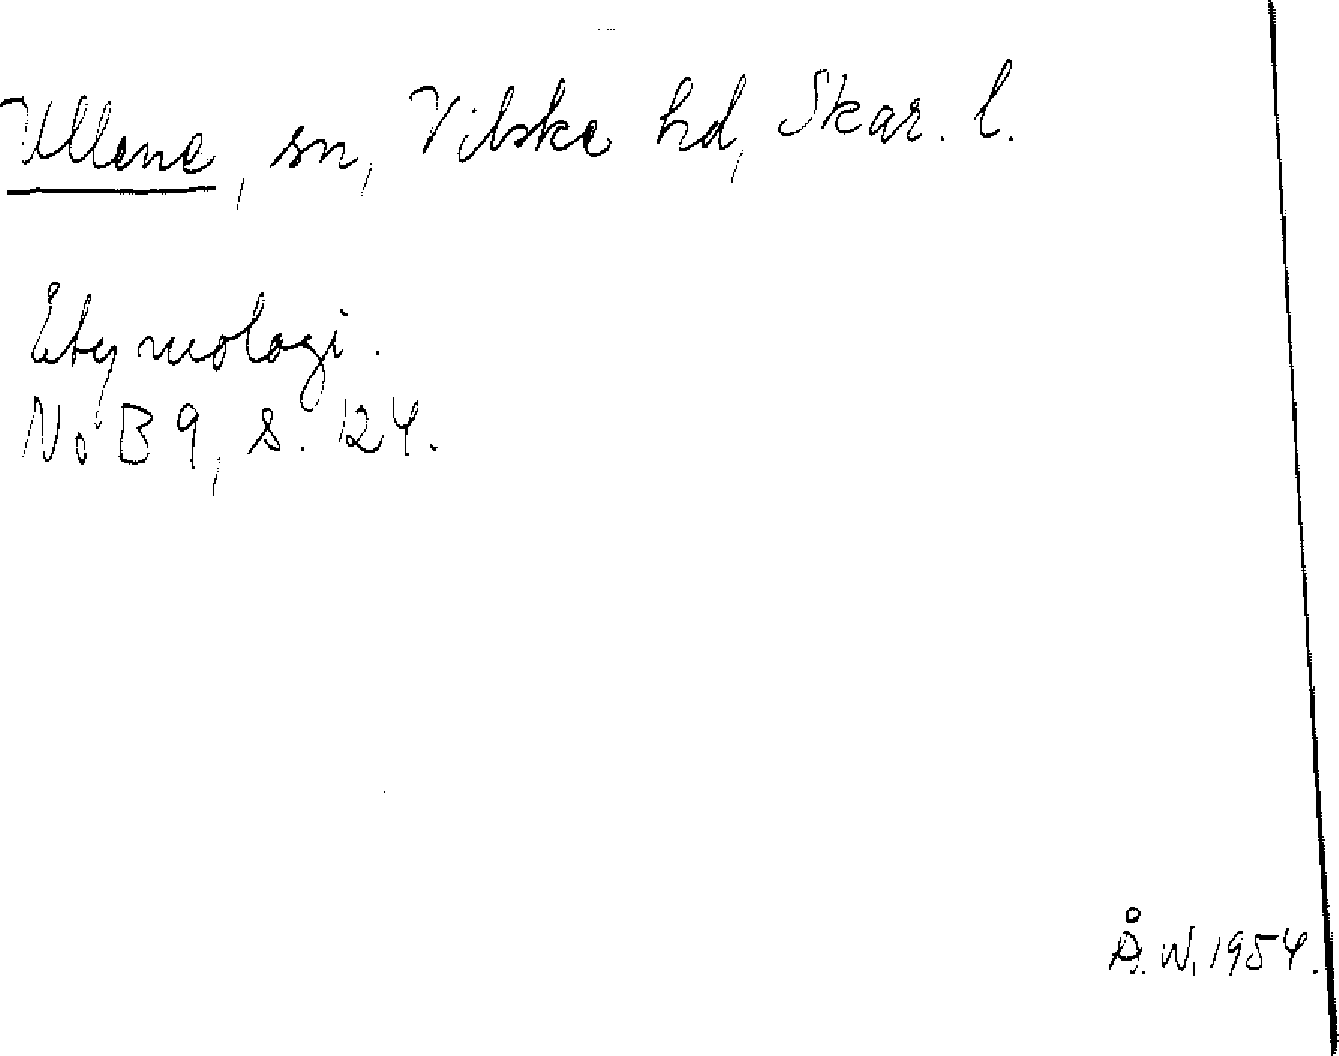 Ullene, sn, Vilske hd, Skar. l.
Etymologi.
NoB 9, s. 124.
Å. W. 1954.